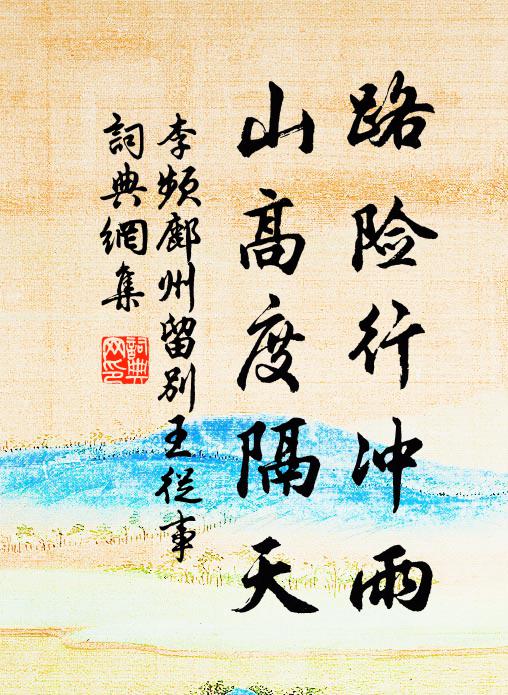 路险行冲雨
山高度隔天
李频鄜州留别王從事
詞典網集
詞典
网印